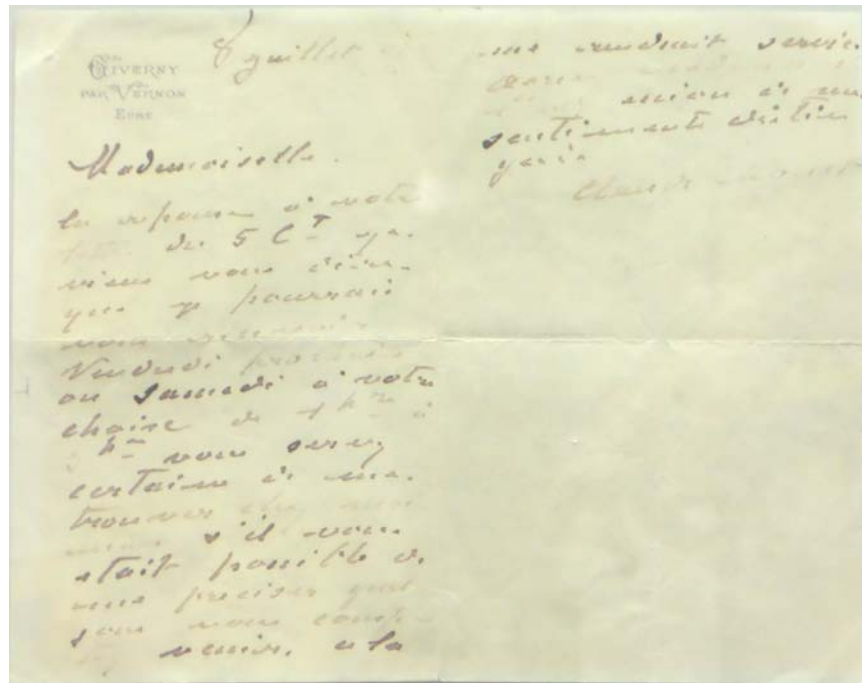 GIVERNY
PAR VERNON
EURE
8 juillet
Mademoiselle.
En reponse à votre
lettre du 5 Ct je
viens vous dire
que je pourrai
vous recevoir
Vendredi prochain
ou Samedi à votre
choix de 1 hre à
hre vous serez
certaine de me
trouver chez moi
mais s'il vous
etait possible de
me preciser quel
jour vous comptez
venir, cela
me rendrait service
sentiments distin
gués
Claude Monet